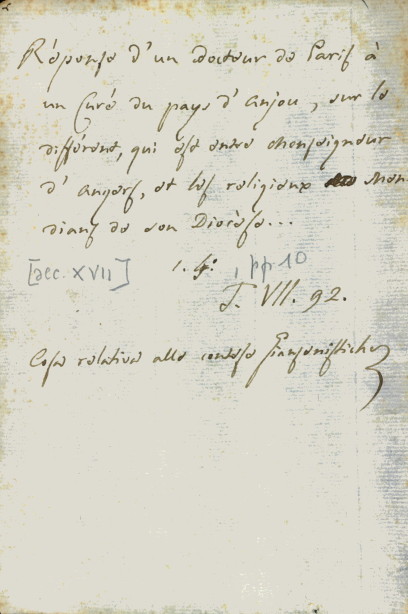 Réponse d'un docteur de Paris à
un Curé du pays d'anjou, sur le
différent, qui est entre Monseigneur
d'Angers, et les religieux Men-
dians de son Diocèse...
[sec. XVII] 1. 4°. , pp 10
T. VII. 92.
Cose relative alle contese Giansenistiche